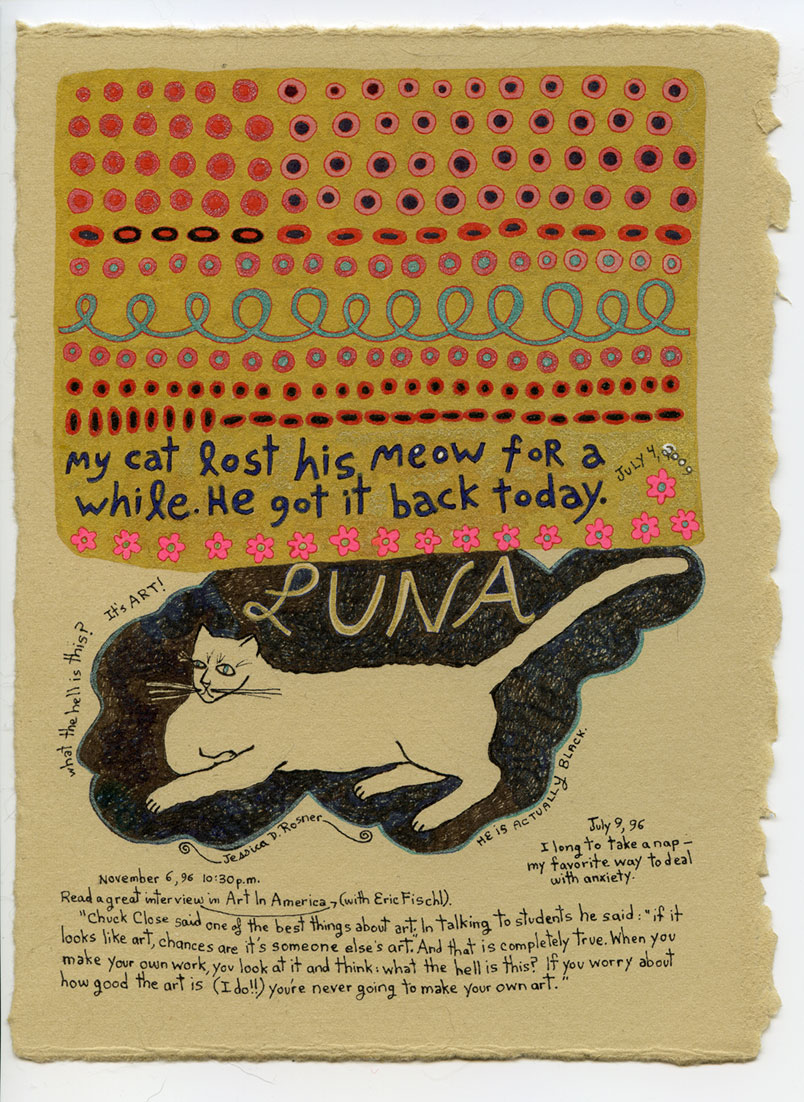 My cat lost his meow for a
while. He got it back today.
JULY 4, 2009
LUNA
It's ART!
what the hell is this?
HE IS ACTUALLY BLACK.
Jessica D. Rosner
July 9, 96
I long to take a nap –
my favorite way to deal
with anxiety.
November 6, 96 10:30 p.m.
Read a great interview in Art In America, (with Eric Fischl).
"Chuck Close said one of the best things about art. In talking to students he said: "if it
looks like art, chances are it's someone else's art." And that is completely true. When you
make your own work, you look at it and think: what the hell is this? If you worry about
how good the art is (I do!!) you're never going to make your own art."